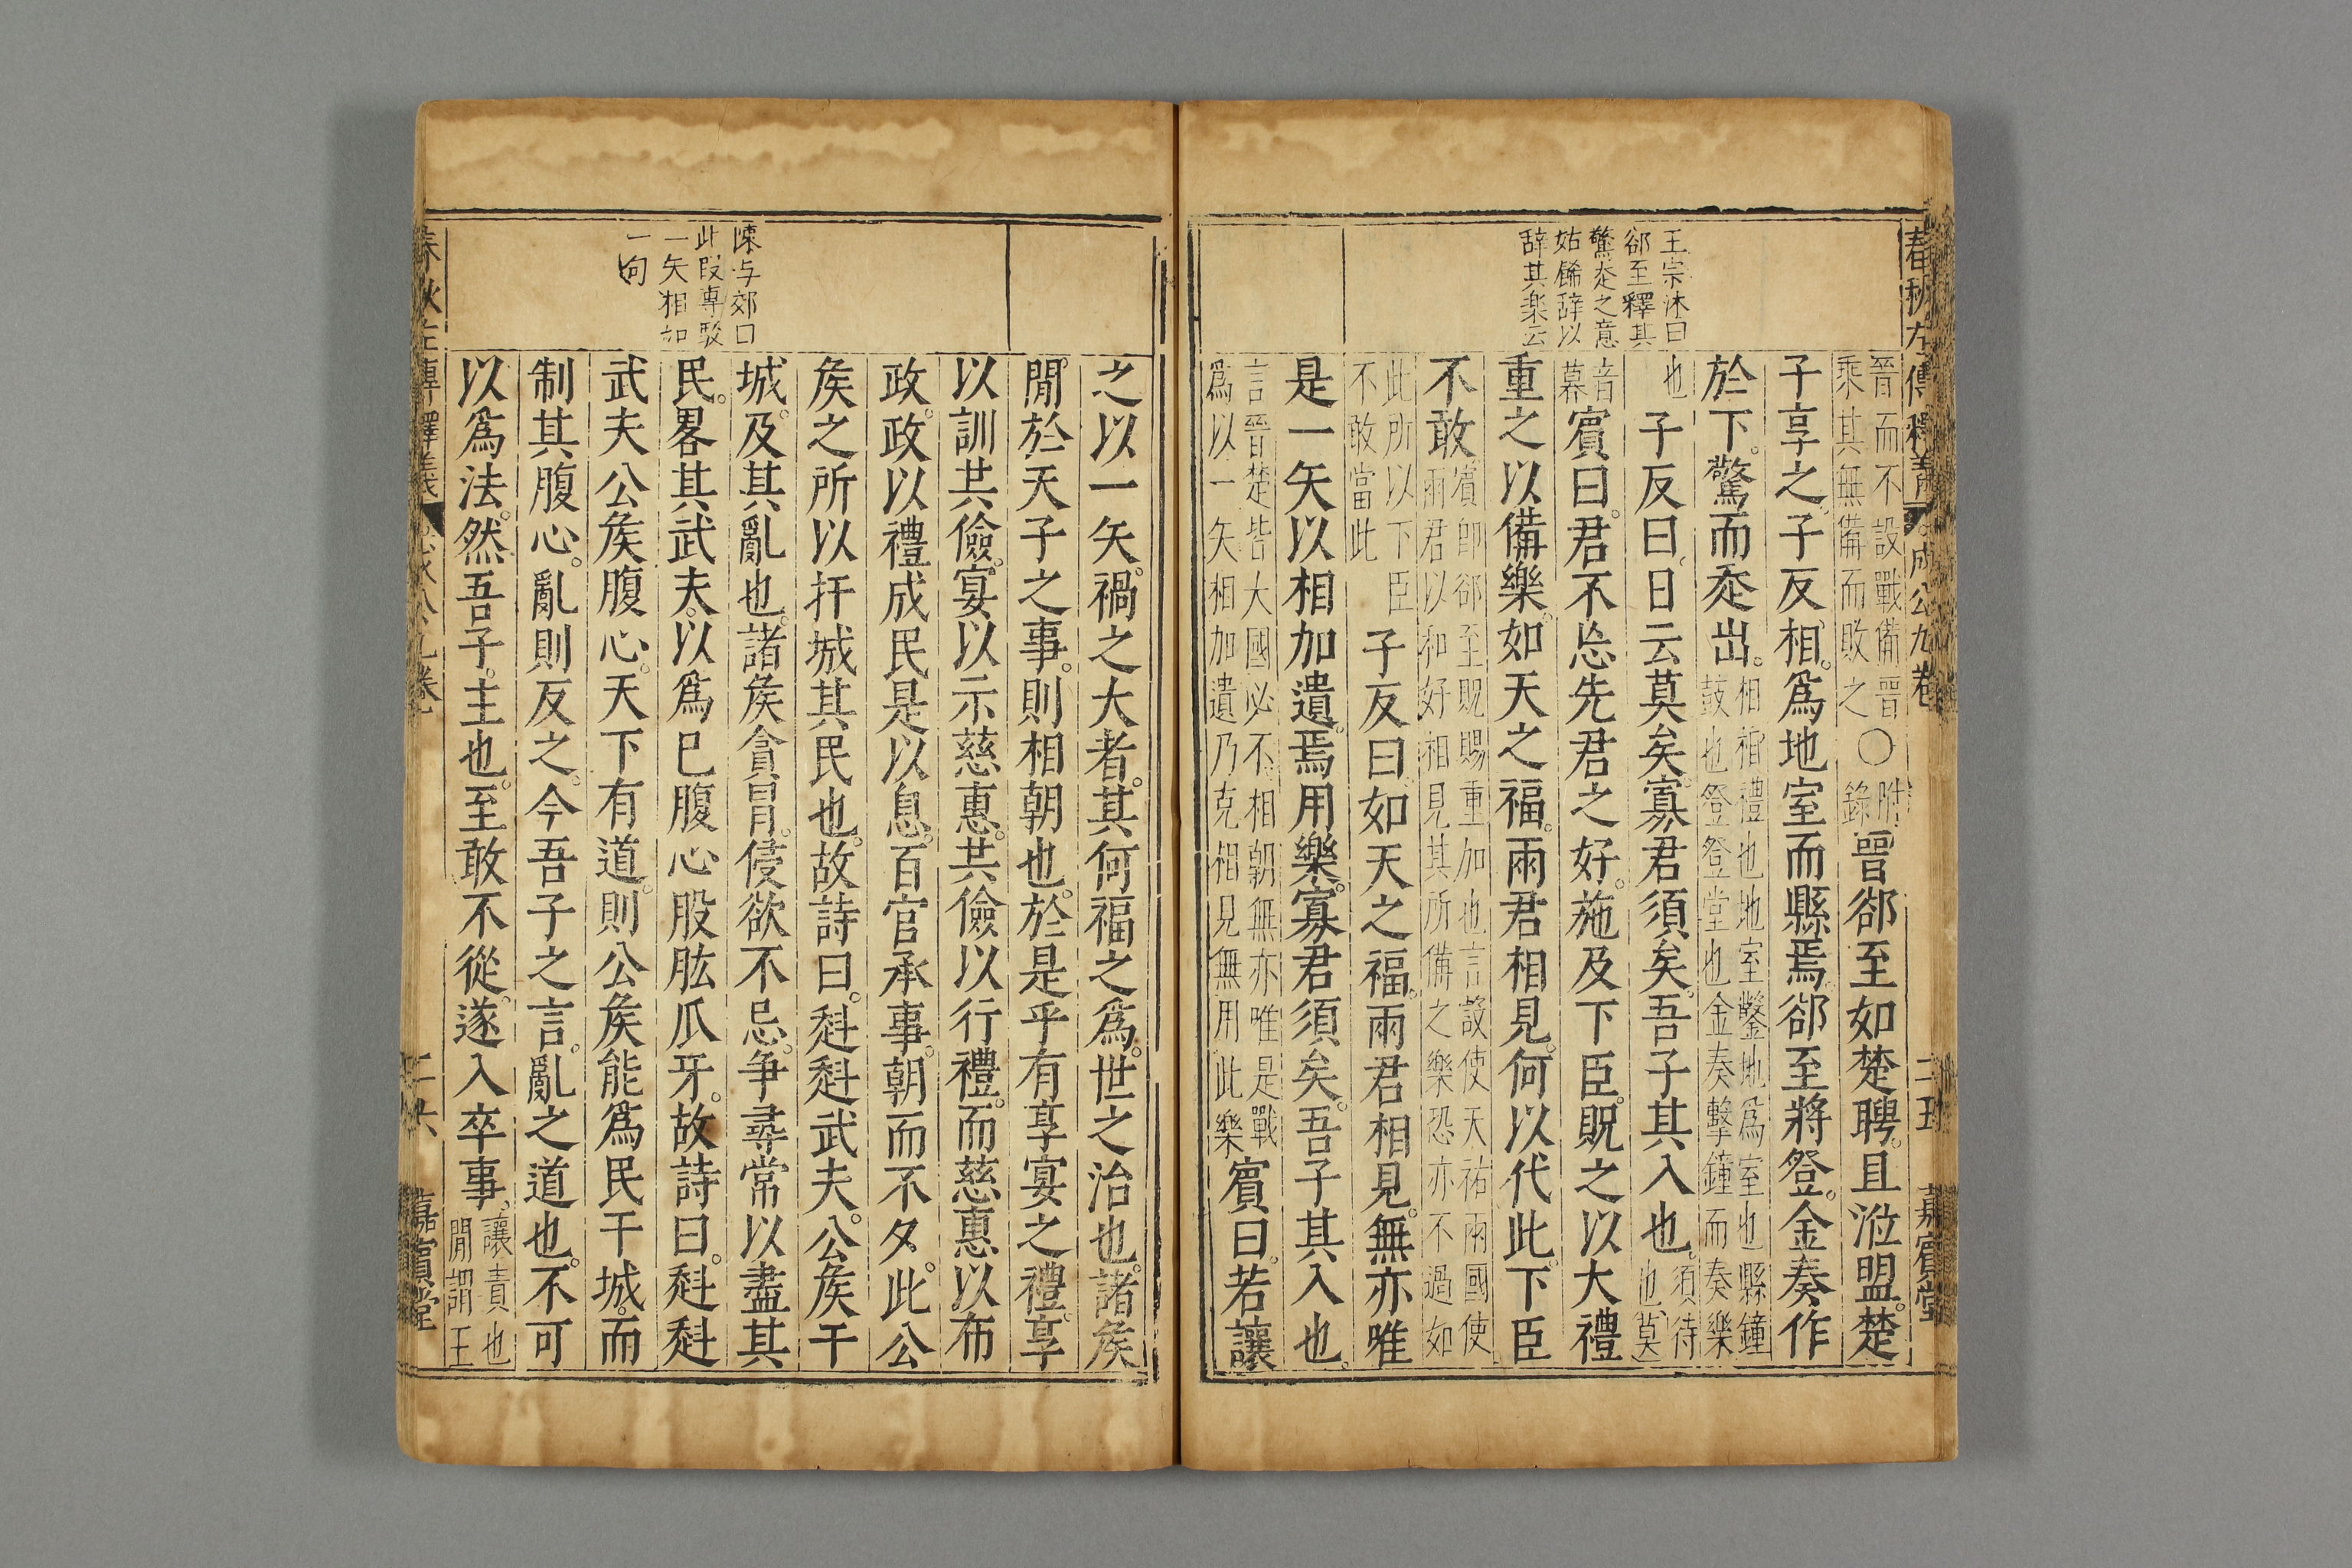 春秋左傳釋義
成公九卷
二五
嘉賓堂
王宗沐曰
郤至釋其
驚走之意
姑餙辞以
辞其楽云
晉而不設戰備晉
乘其無備而敗之〇附
錄晉郤至如楚聘。且涖盟。楚
子享之。子反相。爲地室而縣焉。郤至將登。金奏作
於下。驚而走出。相相禮也地室鑿地爲室也縣鐘
鼓也登登堂也金奏擊鐘而奏樂
也子反曰。日云莫矣。寡君須矣。吾子其入也。須待
也莫
音
慕賓曰。君不忘先君之好。施及下臣。貺之以大禮
重之以備樂。如天之福。兩君相見。何以代此。下臣
不敢賓即郤至貺賜重加也言設使天祐兩國使
兩君以和好相見其所備之樂恐亦不過如
此所以下臣
不敢當此子反曰。如天之福。兩君相見。無亦唯
是一矢以相加遺。焉用樂。寡君須矣。吾子其入也。
言晉楚皆大國必不相朝無亦唯是戰
爲以一矢相加遺乃克相見無用此樂賓曰。若讓
陳与郊曰
此段專駁
一矢相加
一句
之以一矢。禍之大者。其何福之爲。世之治也。諸矦
閒於天子之事。則相朝也。於是乎有享宴之禮。享
以訓共儉。宴以示慈惠。共儉以行禮。而慈惠以布
政。政以禮成民是以息。百官承事。朝而不夕。此公
矦之所以扞城其民也。故詩曰。赳赳武夫。公矦干
城。及其亂也。諸矦貪冒。侵欲不忌。爭尋常以盡其
民。畧其武夫。以爲己腹心股肱爪牙。故詩曰。赳赳
武夫公矦腹心。天下有道。則公矦能爲民干城。而
制其腹心。亂則反之。今吾子之言。亂之道也。不可
以爲法。然吾子。主也。至敢不從。遂入卒事。讓責也
閒謂王
二六
嘉賓堂